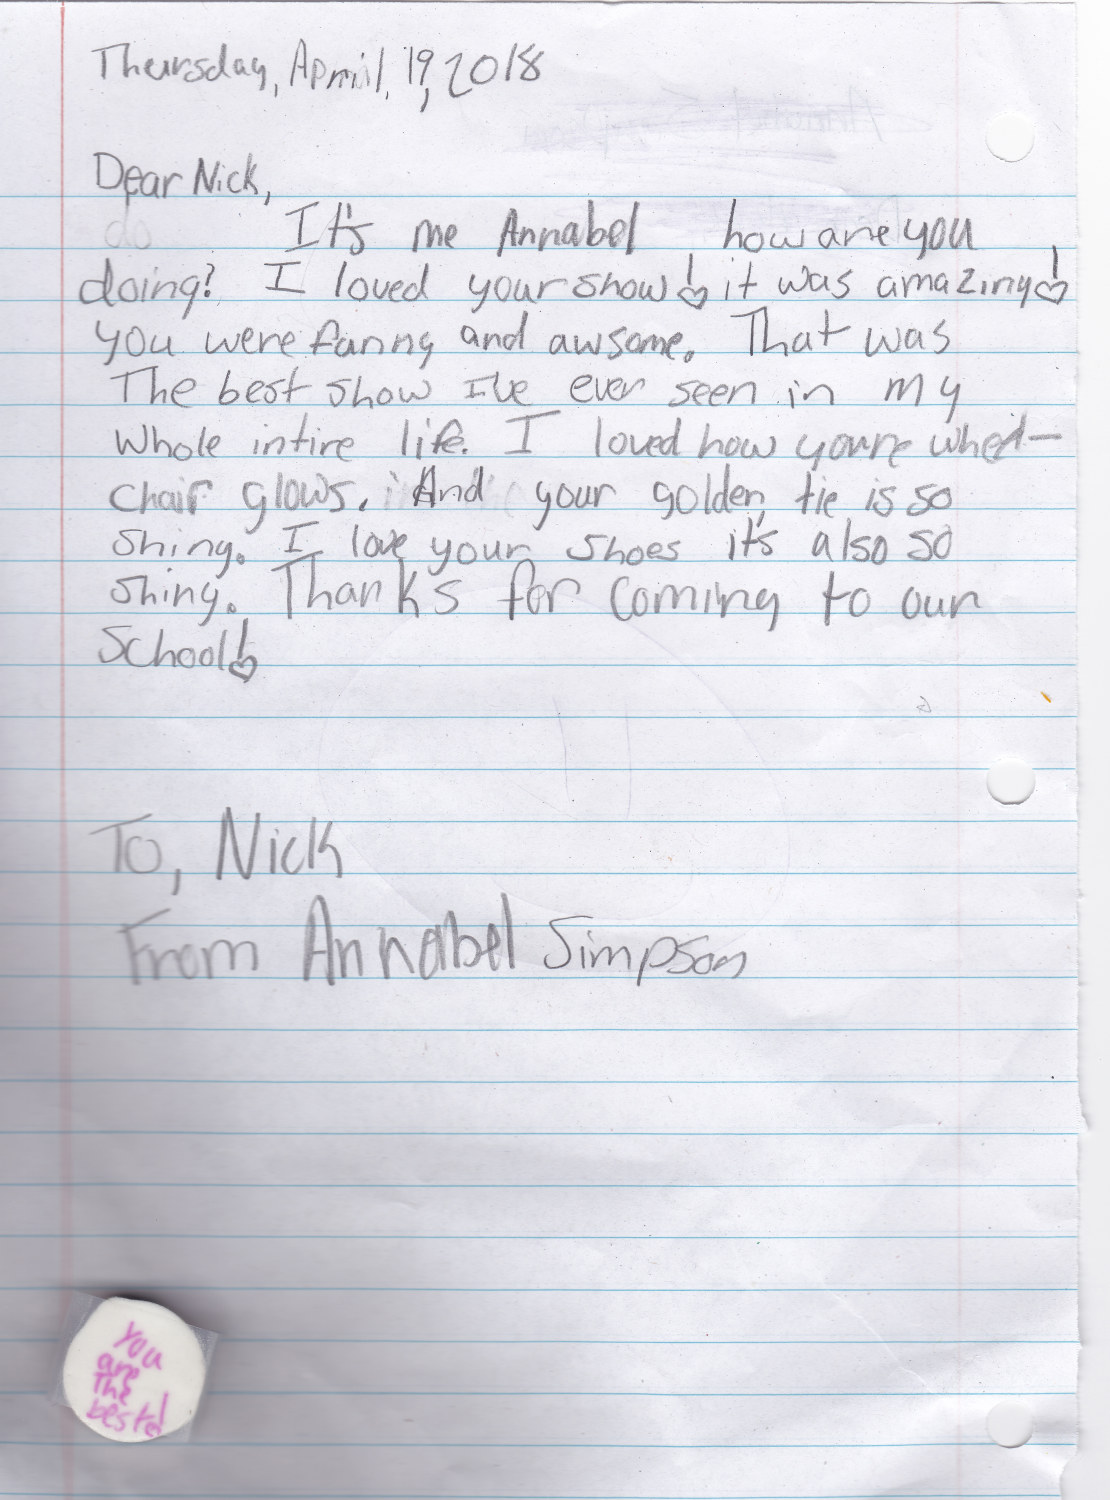 Thursday, April, 19, 2018
Dear Nick,
It's me Annabel how are you
doing? I loved your show! it was amazing!
you were fanny and awsome. That was
The best show I've ever seen in my
whole intire life. I loved how youre wheel-
chair glows. And your golden tie is so
shiny. I love your shoes it's also so
shiny. Thanks for coming to our
School!
To, Nick
From Annabel Simpson
you
are
the
best!